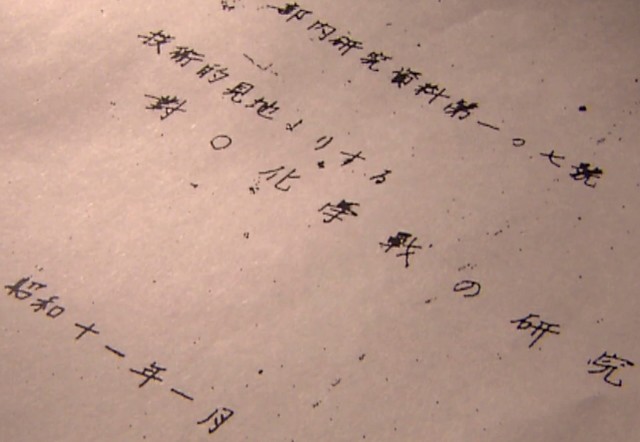 部内研究資料第一〇七號
技術的見地よりする
對〇化學戰の研究
昭和十一年一月